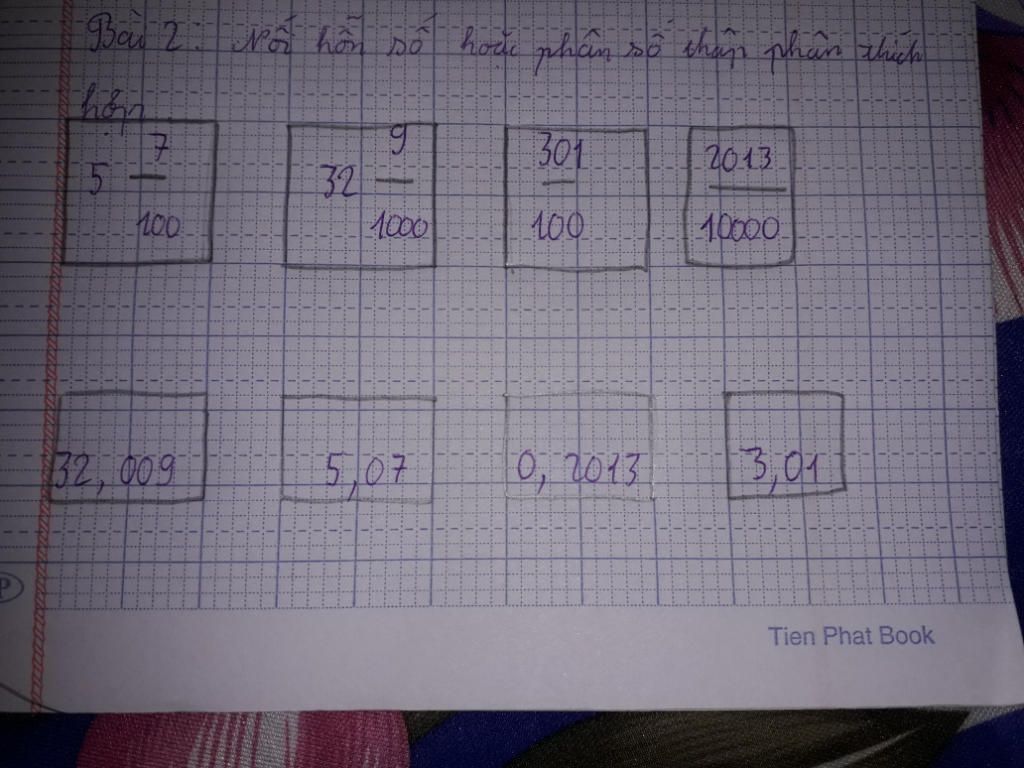 Bài 2: Nối hỗn số hoặc phân số thập phân thích
hợp
5 7/100 32 9/1000 301/100 2013/10000
32,009 5,07 0,2013 3,01
Tien Phat Book